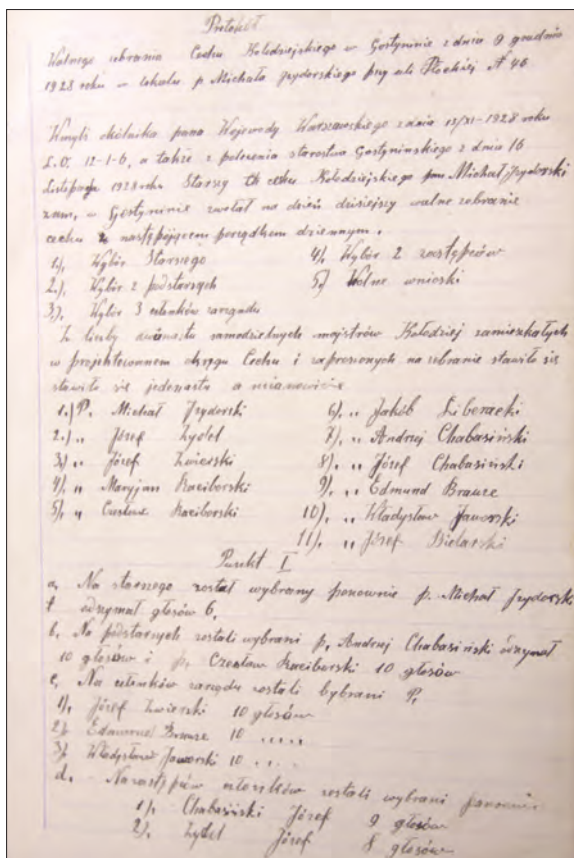 Protokół
Walnego zebrania Cechu Kołodziejskiego w Gostyninie z dnia 9 grudnia
1928 roku w lokalu p. Michała Izydorskiego przy ulicy Płockiej № 46
W myśl okólnika pana Wojewody Warszawskiego z dnia 12/XI-1928 roku
L.O. 12-1-6, a także z polecenia starostwa Gostynińskiego z dnia 16
Listopada 1928 roku Starszy cechu Kołodziejskiego pan Michał Izydorski
zam, w Gostyninie zwołał na dzień dzisiejszy walne zebranie
cechu z następującem porządkem dziennym.
1), Wybór Starszego
2), Wybór 2 podstarszych
3), Wybór 3 członków zarządu
4), Wybór 2 zastępców
5) Wolne wnioski
Z liczby dwónastu samodzielnych majstrów Kołodziej zamieszkałych
w projektowanem okręgu Cechu i zaproszonych na zebranie stawiło się
stawiło się jedenastu a mianowicie
1.) P. Michał Izydorski
2.) " Józef Zydel
3.) " Józef Zwierski
4), " Maryjan Raciborski
5), " Czesław Raciborski
6), " Jakób Liberacki
7), " Andrzej Chabasiński
8), " Józef Chabasiński
9), " Edmund Brauze
10), " Władysław Jaworski
11), " Józef Bielarski
Punkt I
a, Na starszego został wybrany ponownie p. Michał Izydorski
otrzymał głosów 6,
b, Na podstarszych zostali wybrani p, Andrzej Chabasiński otrzymał
10 głosów i p, Czesław Raciborski 10 głosów
c, Na członków zarządu zostali bybrani P,
1), Józef Zwierski 10 głosów
2), Edmund Brauze 10 ....
3), Władysław Jaworski 10 ....
d, Na zastępców członków zostali wybrani panowie
1), Chabasiński Józef 9 głosów
2), Zydel Józef 8 głosów